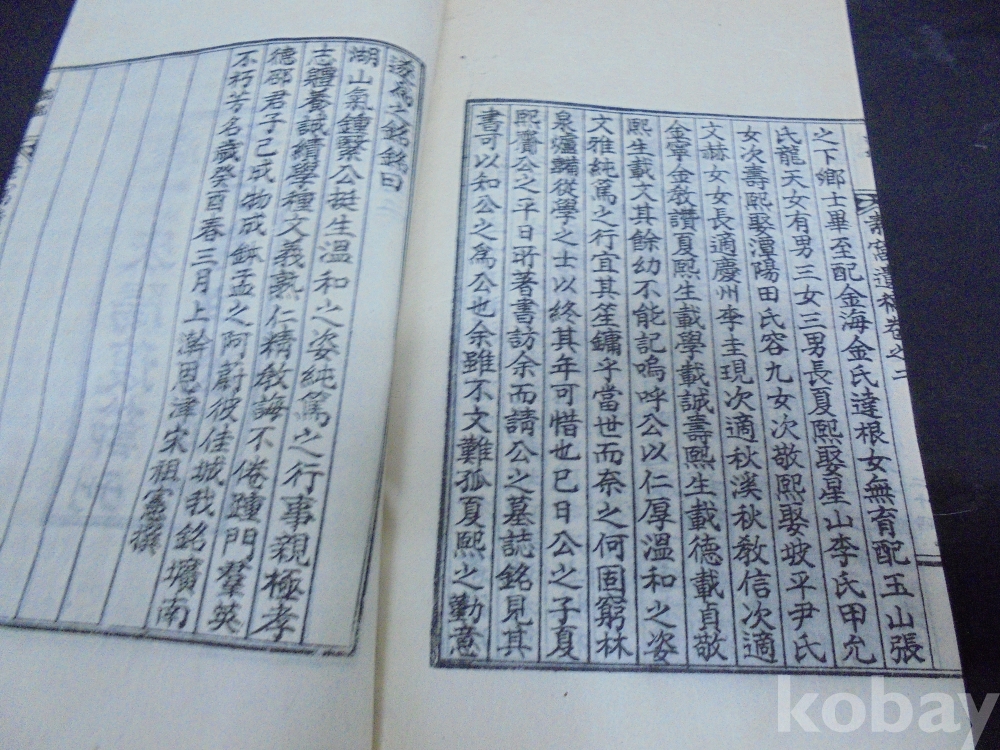 之下鄉士畢至配金海金氏達根女無育配玉山張
氏龍天女有男三女三男長夏熙娶星山李氏甲允
女次壽熙娶潭陽田氏容九女次敬熙娶坡平尹氏
文赫女女長適慶州李圭現次適秋溪秋教信次適
金寧金教讚夏熙生載學載誠壽熙生載德載貞敬
熙生載文其餘幼不能記嗚呼公以仁厚溫和之姿
文雅純篤之行宜其笙鏞乎當世而奈之何固窮林
泉爐鞴從學之士以終其年可惜也已日公之子夏
熙賷公之平日所著書訪余而請公之墓誌銘見其
書可以知公之爲公也余雖不文難孤夏熙之勤意
遂爲之銘銘曰
湖山氣鍾繄公挺生溫和之姿純篤之行事親極孝
志體養誠績學種文義熟仁精教誨不倦踵門羣英
德邵君子己成物成鉢孟之阿蔚彼佳城我銘壙南
不朽芳名歲癸酉春三月上澣恩津宋祖憲撰
窩遺稿卷之二
kobay